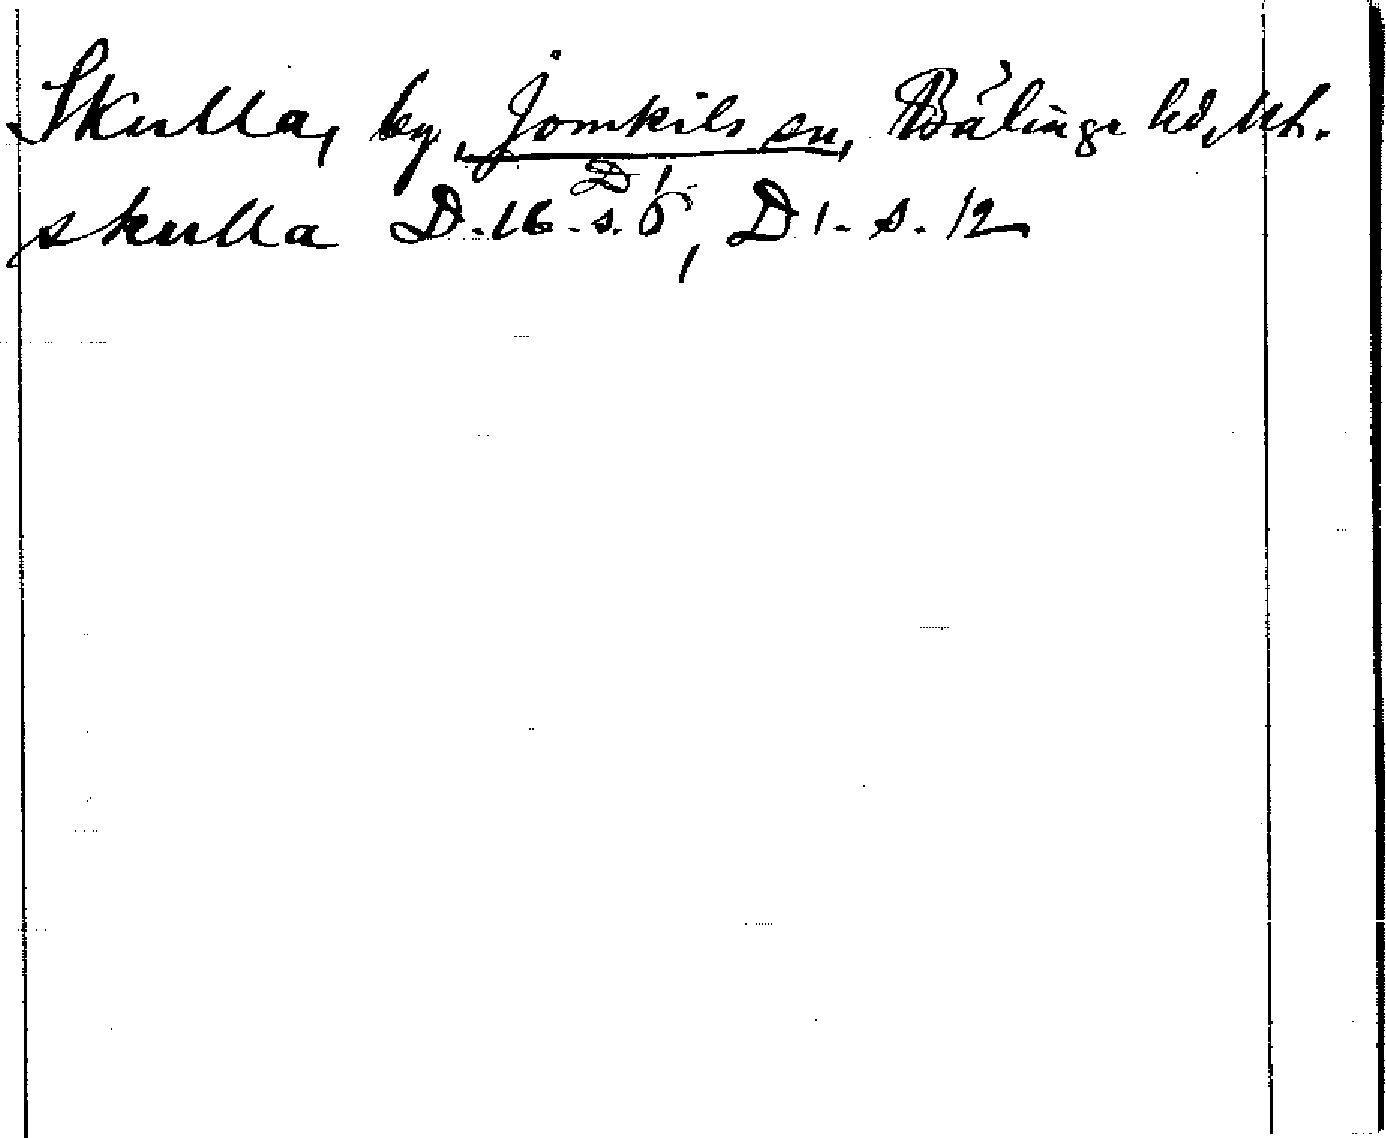 Skulla, by, Jomkils sn, Bälinge hd, Upl.
skulla D.16 - s. 6, D 1 - s. 12